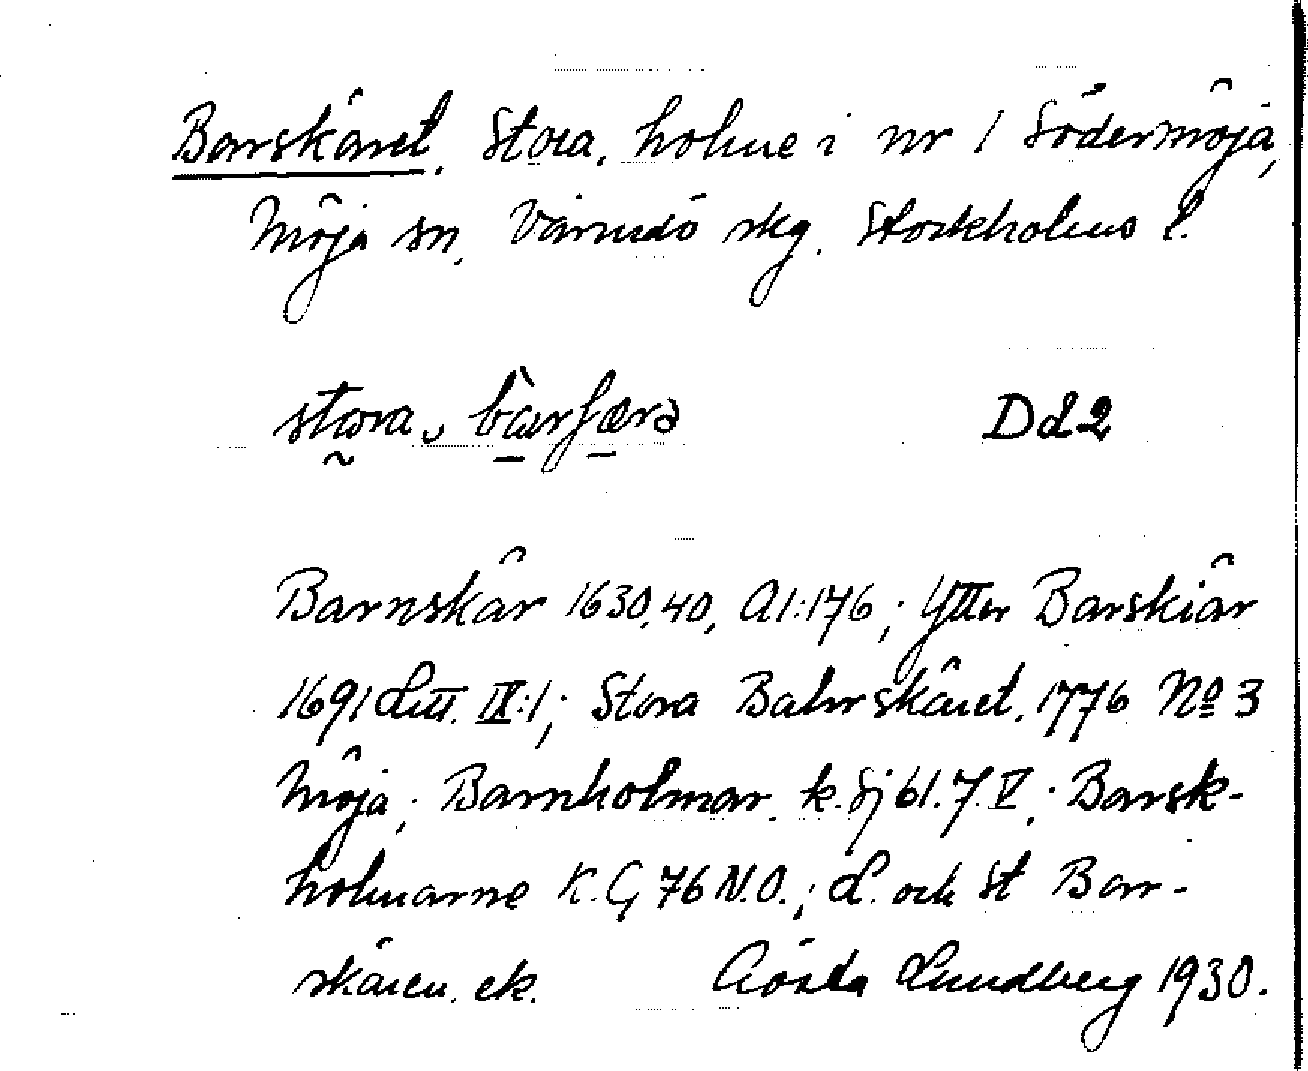 Barskäret, Stora, holme i nr 1 Södermöja,
Möja sn, Värmdö skg. Stockholms l.
stora, barʃærə Dd2
Barnskär 1630,40, A1:176; Ytter Barskiär
1691 Litt. IX:1; Stora Bahrskäret, 1776 No 3
Möja; Barnholmar k. Sj 61.7.V.; Barsk-
holmarne K.G, 76 N.O.; L. och St Bar-
skären. ek. Gösta Lundberg 1930.